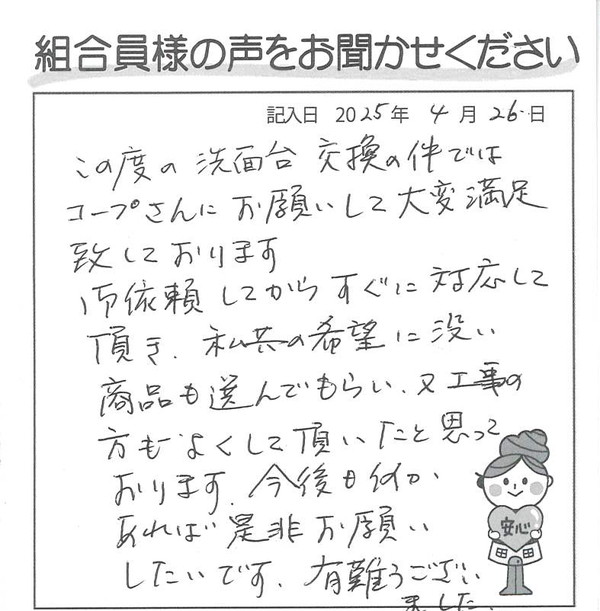 組合員様の声をお聞かせください
記入日 2025年 4月 26日
この度の 洗面台 交換の件では
コープさんに お願いして 大変満足
致しております
御依頼してからすぐに 対応して
頂き、私共の希望に没い
商品も選んでもらい、又工事の
方もよくして頂いたと思って
おります、今後も何か
あれば 是非お願い
したいです、有難うござい
ました、
安心